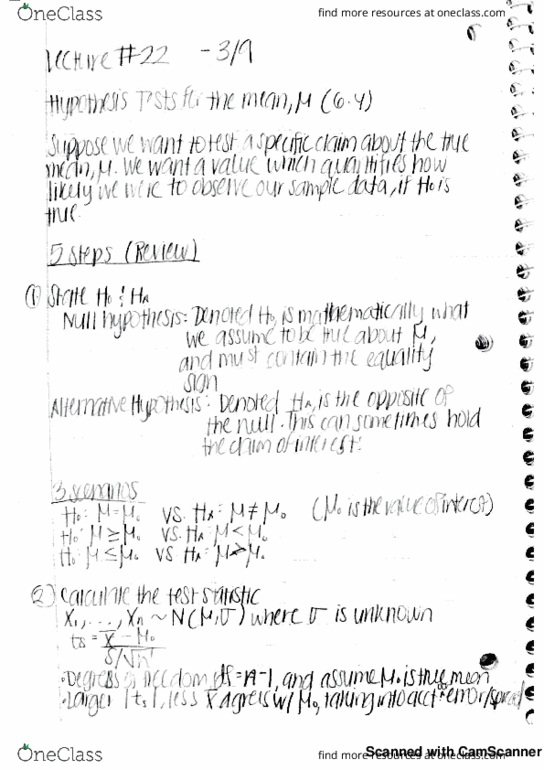 OneClass
find more resources at oneclass.com
Lecture #22 - 3/9
Hypothesis Tests for the mean, μ (6.4)
Suppose we want to test a specific claim about the true
mean, μ. We want a value which quantifies how
likely we were to observe our sample data, if H₀ is
true.
5 Steps (Review)
① State H₀ & Hₐ
Null hypothesis: Denoted H₀, is mathematically what
we assume to be true about μ,
and must contain the equality
sign
Alternative Hypothesis: Denoted Hₐ, is the opposite of
the null. This can sometimes hold
the claim of interest!
3 scenarios
H₀: μ = μ₀ VS. Hₐ: μ ≠ μ₀ (μ₀ is the value of interest)
H₀: μ ≥ μ₀ VS. Hₐ: μ < μ₀
H₀: μ ≤ μ₀ VS Hₐ: μ > μ₀
② Calculate the test statistic
X₁, ..., Xₙ ~ N(μ, σ) where σ is unknown
ts = x̄ - μ₀
s/√n
· Degrees of freedom df = n-1, and assume μ₀ is true mean
· Larger |ts|, less x̄ agrees w/ μ₀, taking into acct error/spread
OneClass
find more resources at oneclass.com
Scanned with CamScanner